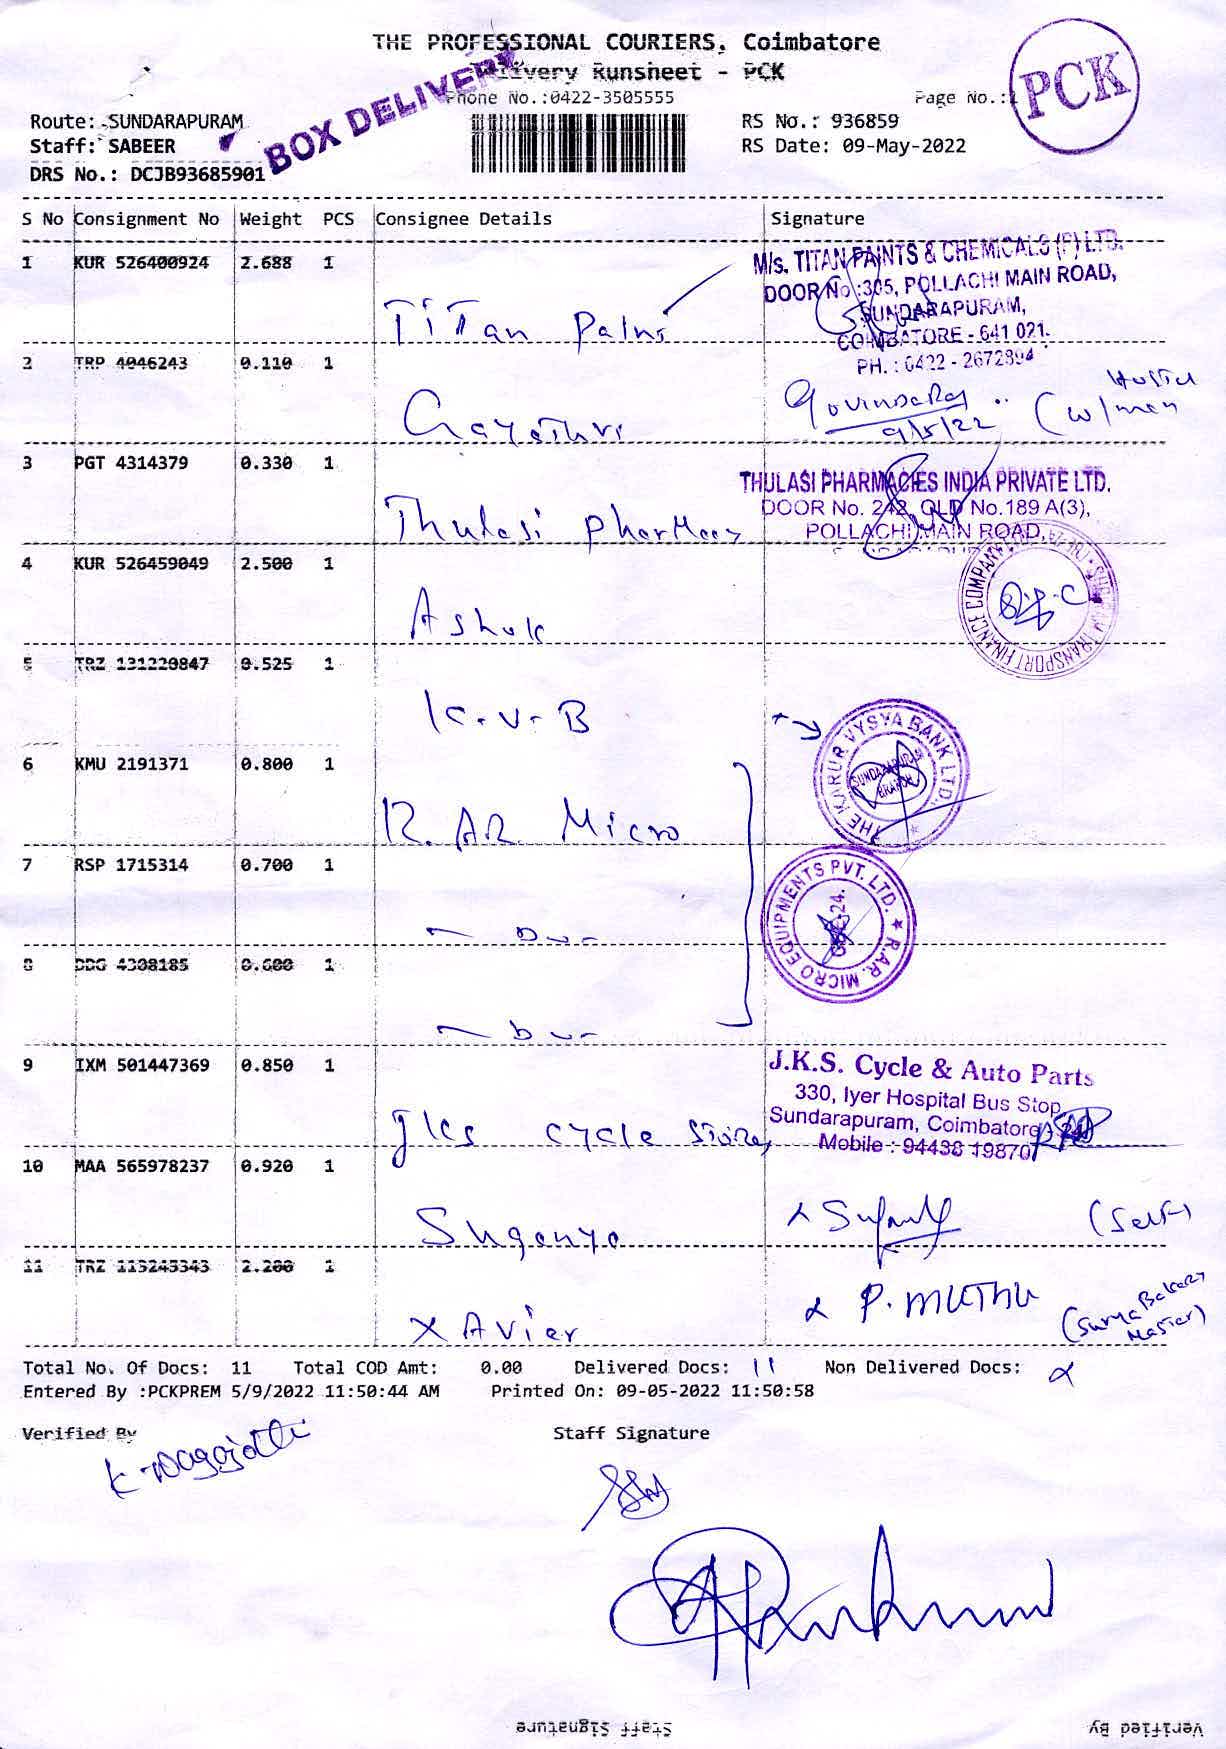 THE PROFESSIONAL COURIERS, Coimbatore
Delivery Runsheet - PCK
Phone No.:0422-3505555
Page No.:1
PCK
BOX DELIVERY
Route: SUNDARAPURAM
RS No.: 936859
Staff: SABEER
RS Date: 09-May-2022
DRS No.: DCJB93685901
S No Consignment No Weight PCS Consignee Details Signature
1 KUR 526400924 2.688 1
Titan Paint
M/s. TITAN PAINTS & CHEMICALS (P) LTD.
DOOR No :305, POLLACHI MAIN ROAD,
SUNDARAPURAM,
COIMBATORE - 641 021.
PH. : 0422 - 2672894
2 TRP 4046243 0.110 1
Gayathri
Govindaraj
9/5/22
Hostel
(w/men
3 PGT 4314379 0.330 1
Thulasi Pharmacy
THULASI PHARMACIES INDIA PRIVATE LTD.
DOOR No. 242, OLD No.189 A(3),
POLLACHI MAIN ROAD,
4 KUR 526459049 2.500 1
Ashok
TRANSPORT FINANCE COMPANY
5 TRZ 131220847 0.525 1
K.V.B
THE KARUR VYSYA BANK LTD.,
SUNDARAPURAM
BRANCH
6 KMU 2191371 0.800 1
R.AR Micro
7 RSP 1715314 0.700 1
R.A.R. MICRO EQUIPMENTS PVT. LTD.
8 DDG 4308185 0.600 1
9 IXM 501447369 0.850 1
Jks cycle stores
J.K.S. Cycle & Auto Parts
330, Iyer Hospital Bus Stop,
Sundarapuram, Coimbatore
Mobile : 94438 19870
10 MAA 565978237 0.920 1
Suganya
(Self)
11 TRZ 113245343 2.200 1
XAvier
P. MUTHU
(Surya Bakery
Master)
Total No. Of Docs: 11 Total COD Amt: 0.00 Delivered Docs: 11 Non Delivered Docs:
Entered By :PCKPREM 5/9/2022 11:50:44 AM Printed On: 09-05-2022 11:50:58
Verified By Staff Signature
Staff Signature Verified By